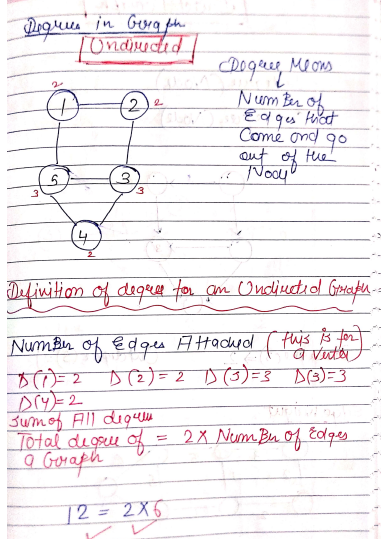 Degree in Graph
Undirected
Degree Means
2
1
2
2
Number of
Edges that
Come and go
out of the
Node
5
3
3
3
4
2
Definition of degree for an Undirected Graph
Number of Edges Attached (this is for
a vertex)
D(1)=2 D(2)=2 D(5)=3 D(3)=3
D(4)=2
Sum of All degree
Total degree of = 2× Number of Edges
a Graph
12 = 2×6